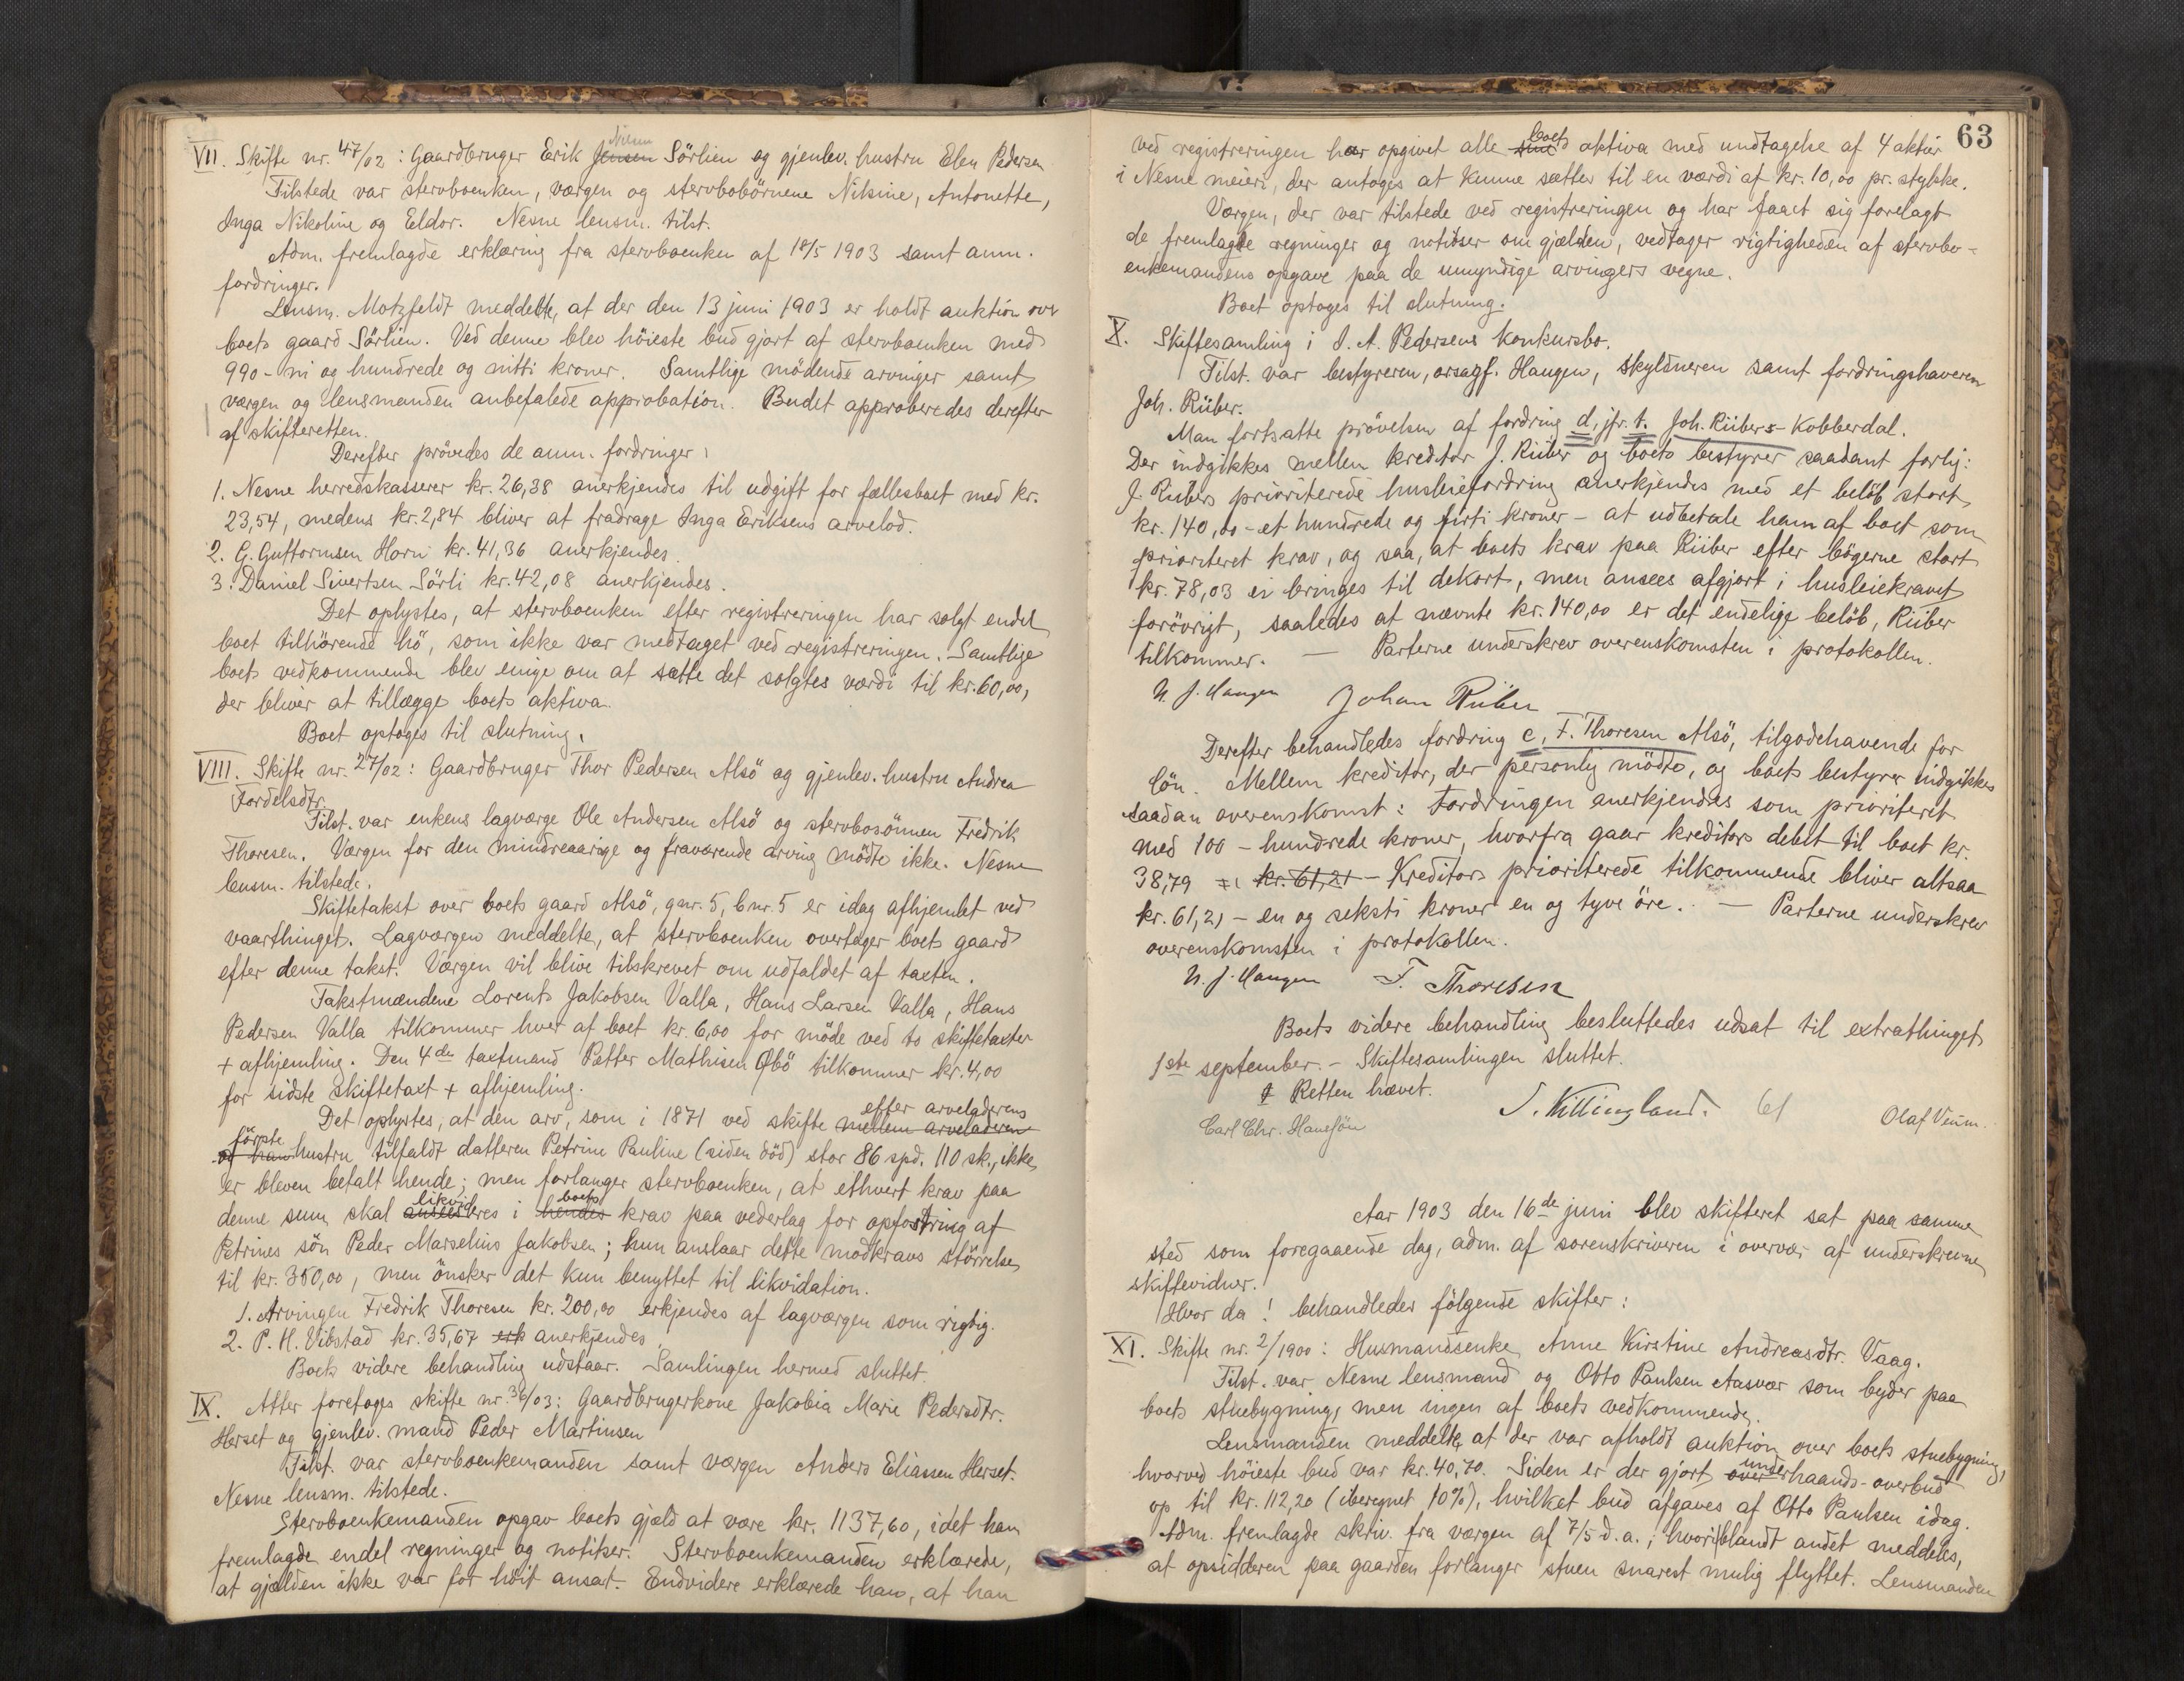 VII. Skifte nr. 47/02: Gaardbruger Erik Jensen Nilsen Sörlien og gjenlev. hustru Elen Pedersen
Tilstede var stervboenken, værgen og stervbobörnene Niksine, Antonette,
Inga Nikoline og Eldor. Nesne lensm. tilst.
Adm. fremlagde erklæring fra stervboenken af 18/5 1903 samt anm.
fordringer.
Lensm. Motzfeldt meddelte, at der den 13 juni 1903 er holdt auktion over
boets gaard Sörlien. Ved denne blev höieste bud gjort af stervboenken med
990 - ni og hundrede og nitti kroner. Samtlige mödende arvinger samt
værgen og lensmanden anbefalede approbation. Budet approberedes derefter
af skifteretten.
Derefter prövedes de anm. fordringer:
1. Nesne herredskasserer kr. 26,38 anerkjendes til udgift for fællesboet med kr.
23,54, medens kr. 2,84 bliver at fradrage Inga Eriksens arvelod.
2. G. Guttormsen Horn kr. 41,36 anerkjendes.
3. Daniel Sivertsen Sörli kr. 42,08 anerkjendes.
Det oplystes, at stervboenken efter registreringen har solgt endel
boet tilhörende hö, som ikke var medtaget ved registreringen. Samtlige
boets vedkommende blev enige om at sætte det solgtes værdi til kr. 60,00,
der bliver at tillægge boets aktiva.
Boet optoges til slutning.
VIII. Skifte nr. 27/02: Gaardbruger Thor Pedersen Alsö og gjenlev. hustru Andrea
Fordelsdtr.
Tilst. var enkens lagværge Ole Andersen Alsö og stervbosönnen Fredrik
Thoresen. Værgen for den mindreaarige og fraværende arving mödte ikke. Nesne
lensm. tilstede.
Skiftetakst over boets gaard Alsö, gnr. 5, bnr. 5 er idag afhjemlet ved
vaarthinget. Lagværgen meddelte, at stervboenken overtager boets gaard
efter denne takst. Værgen vil blive tilskrevet om udfaldet af taxten.
Takstmændene Lorents Jakobsen Valla, Hans Larsen Valla, Hans
Pedersen Valla tilkommer hver af boet kr. 6,00 for möde ved to skiftetaxter
+ afhjemling. Den 4de taxtmand Petter Mathisen Øbö tilkommer kr. 4,00
for sidste skiftetaxt + afhjemling.
Det oplystes, at den arv, som i 1871 ved skifte mellem arveladeren efter arveladerens
og han förste hustru tilfaldt datteren Petrine Pauline (siden död) stor 86 spd. 110 sk., ikke
er bleven betalt hende; men forlanger stervboenken, at ethvert krav paa
denne sum skal ansees likvideres i hendes boets krav paa vederlag for opfostring af
Petrines sön Peder Marselius Jakobsen; hun anslaar dette modkravs störrelse
til kr. 350,00, men önsker det kun benyttet til likvidation.
1. Arvingen Fredrik Thoresen kr. 200,00 erkjendes af lagværgen som rigtig.
2. P. H. Vibstad kr. 35,67 erk anerkjendes
Boets videre behandling udstaar. Samlingen hermed sluttet.
IX. Atter foretoges skifte nr. 36/03: Gaardbrugerkone Jakobia Marie Pedersdtr.
Herset og gjenlev. mand Peder Martinsen
Tilst. var stervboenkemanden samt værgen Anders Eliassen Herset.
Nesne lensm. tilstede.
Stervboenkemanden opgav boets gjæld at være kr. 1137,60, idet han
fremlagde endel regninger og notitser. Stervboenkemanden erklærede,
at gjælden ikke var for höit ansat. Endvidere erklærede han, at han
63
ved registreringen har opgivet alle sine boets aktiva med undtagelse af 4 aktier
i Nesne meieri, der antoges at kunne sættes til en værdi af kr. 10,00 pr. stykke.
Værgen, der var tilstede ved registreringen og har faaet sig forelagt
de fremlagte regninger og notitser om gjælden, vedtager rigtigheden af stervbo-
enkemandens opgave paa de umyndige arvingers vegne.
Boet optoges til slutning.
X. Skiftesamling i I. A. Pedersens konkursbo.
Tilst. var bestyreren, orsagf. Haugen, skyldneren samt fordringshaveren
Joh. Rüber.
Man fortsatte prövelsen af fordring d, jfr. t. Joh. Rübers - Kobberdal.
Der indgikkes mellem kreditor J. Rüber og boets bestyrer saadant forlig:
J. Rübers prioriterede husleiefordring anerkjendes med et belöb stort
kr. 140,00 - et hundrede og firti kroner - at udbetale ham af boet som
prioriteret krav, og saa, at boets krav paa Rüber efter bögerne stort
kr. 78,03 ei bringes til dekort, men ansees afgjort i husleiekravet
forövrigt, saaledes at nævnte kr. 140,00 er det endelige belöb, Rüber
tilkommer. — Parterne underskrev overenskomsten i protokollen.
N. J. Haugen Johan Rüber
Derefter behandledes fordring e, F. Thoresen Alsö, tilgodehavende for
lön. Mellem kreditor, der personlig mödte, og boets bestyrer indgikkes
saadan overenskomst: Fordringen anerkjendes som prioriteret
med 100 - hundrede kroner, hvorfra gaar kreditors debet til boet kr.
38,79 = kr. 61,21 - Kreditors prioriterede tilkommende bliver altsaa
kr. 61,21 - en og seksti kroner en og tyve öre. — Parterne underskrev
overenskomsten i protokollen.
N. J. Haugen F. Thoresen
Boets videre behandling besluttedes udsat til extrathinget
1ste september. - Skiftesamlingen sluttet.
Retten hævet.
Carl Chr. Hansjön S. Killingland. Olaf Veum.
Aar 1903 den 16de juni blev skifteret sat paa samme
sted som foregaaende dag, adm. af sorenskriveren i overvær af underskrevne
skiftevidner.
Hvor da! behandledes fölgende skifter:
XI. Skifte nr. 2/1900: Husmandsenke Anne Kirstine Andreasdtr. Vaag.
Tilst. var Nesne lensmand og Otto Paulsen Aasvær som byder paa
boets stuebygning, men ingen af boets vedkommende.
Lensmanden meddelte, at der var afholdt auktion over boets stuebygning,
hvorved höieste bud var kr. 40,70. Siden er der gjort over underhaands-overbud
op til kr. 112,20 (iberegnet 10%), hvilket bud afgaves af Otto Paulsen idag.
Adm. fremlagde skriv. fra værgen af 7/5 d.a.; hvoriblandt andet meddeles,
at opsidderen paa gaarden forlanger stuen snarest mulig flyttet. Lensmanden